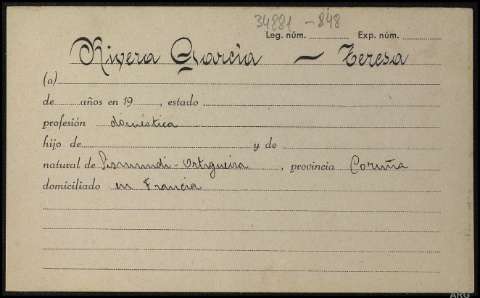 34881 - 848
Leg. núm. Exp. núm.
Rivera García — Teresa
(a)
de años en 19 , estado
profesión doméstica
hijo de y de
natural de - Ortigueira , provincia Coruña
domiciliado en Francia